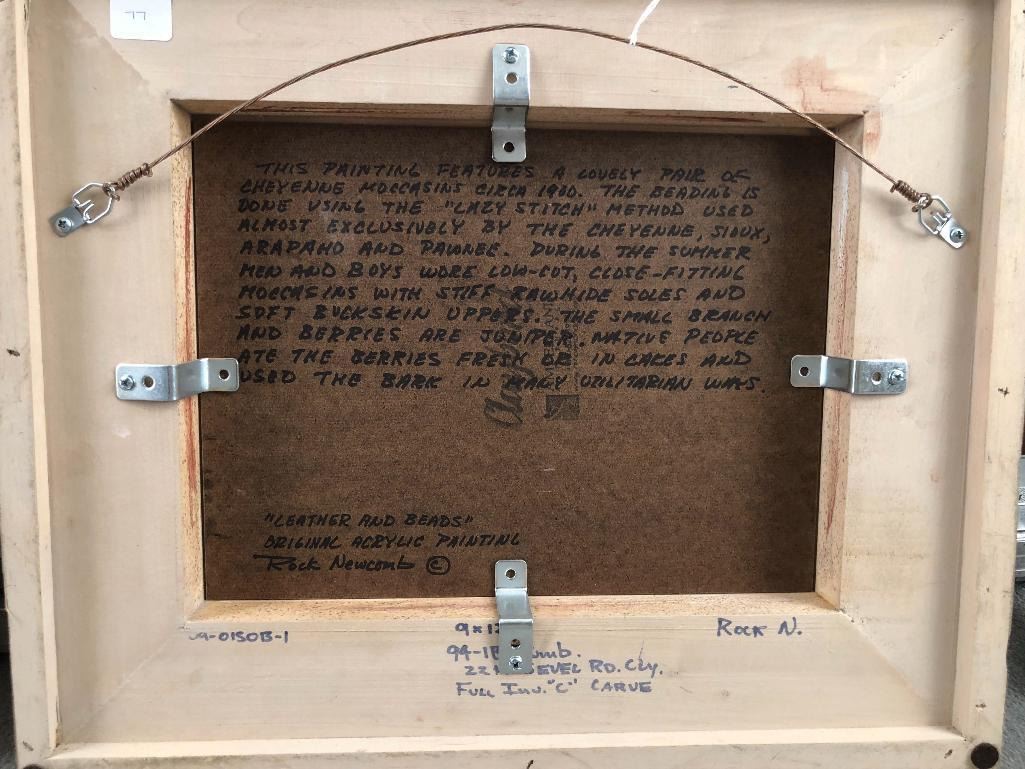 77
THIS PAINTING FEATURES A LOVELY PAIR OF
CHEYENNE MOCCASINS CIRCA 1900. THE BEADING IS
DONE USING THE "LAZY STITCH" METHOD USED
ALMOST EXCLUSIVELY BY THE CHEYENNE, SIOUX,
ARAPAHO AND PAWNEE. DURING THE SUMMER
MEN AND BOYS WORE LOW-CUT, CLOSE-FITTING
MOCCASINS WITH STIFF RAWHIDE SOLES AND
SOFT BUCKSKIN UPPERS. THE SMALL BRANCH
AND BERRIES ARE JUNIPER. NATIVE PEOPLE
ATE THE BERRIES FRESH OR IN CAKES AND
USED THE BARK IN MANY UTILITARIAN WAYS.
"LEATHER AND BEADS"
ORIGINAL ACRYLIC PAINTING
Rock Newcomb ©
09-0150B-1
9x12
ROCK N.
94-1
RD. Cly.
FULL INV. "C" CARVE